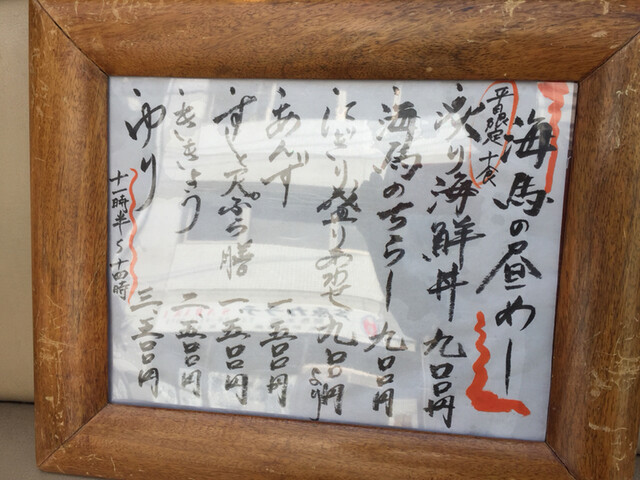 海馬の昼めし
平日限定 十食
海鮮丼 九〇〇円
海馬のちらし 九〇〇円
にぎり盛り合わせ 九〇〇円より
あんず 一、五〇〇円
すしと天ぷら膳 一、五〇〇円
ききょう 二、五〇〇円
ゆり 三、五〇〇円
十一時半〜十四時